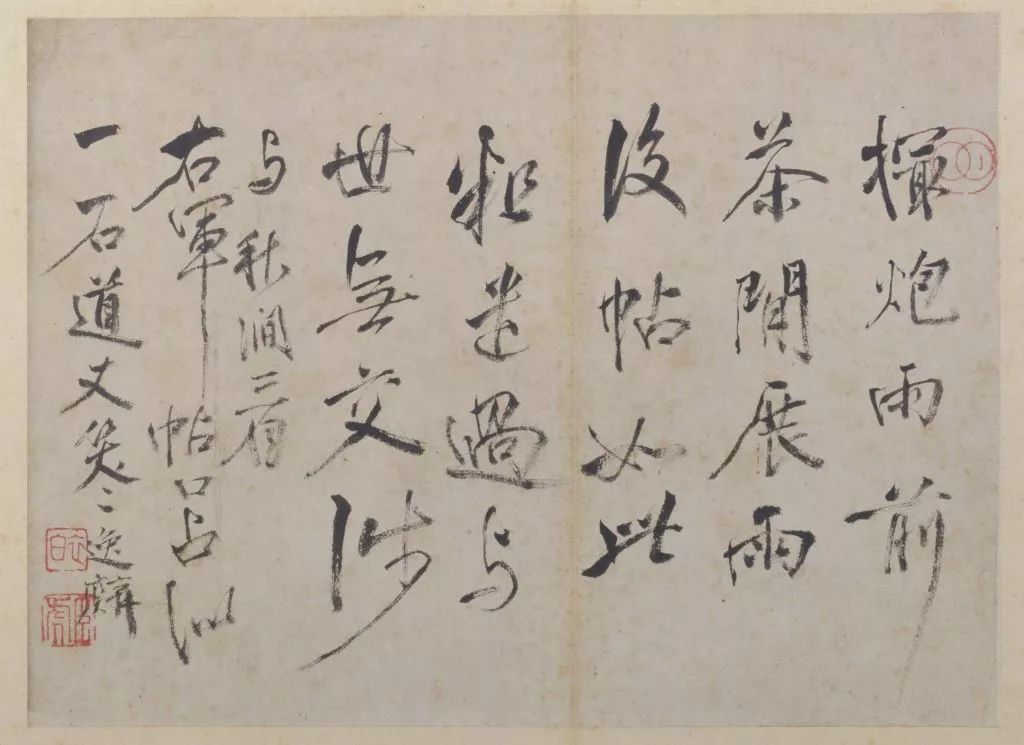 撮炮雨前
茶閒展雨
後帖如此
粗遣過与
世無交涉
与秋澗三看
右軍帖口占似
一石道丈笑〻逸